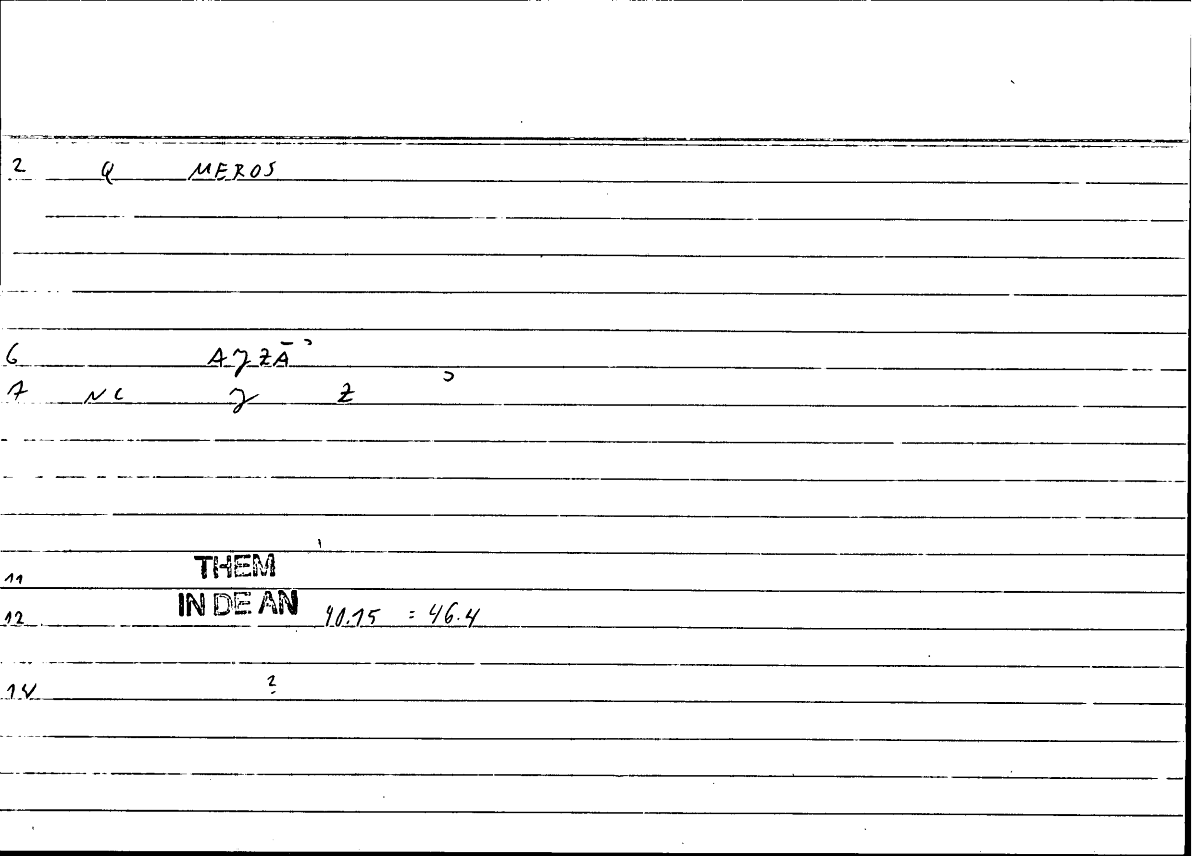 2 Q MEROS
6 AȝZĀ ʾ
7 NC ȝ Z ʾ
11 THEM
12 IN DE AN 40.15 = 46.4
14 ?